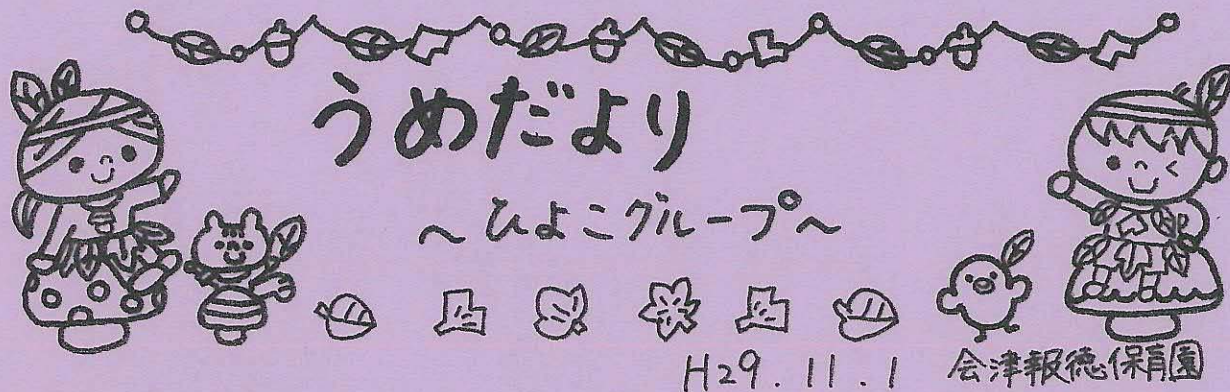 うめだより
～ひよこグループ～
H29.11.1 会津報徳保育園